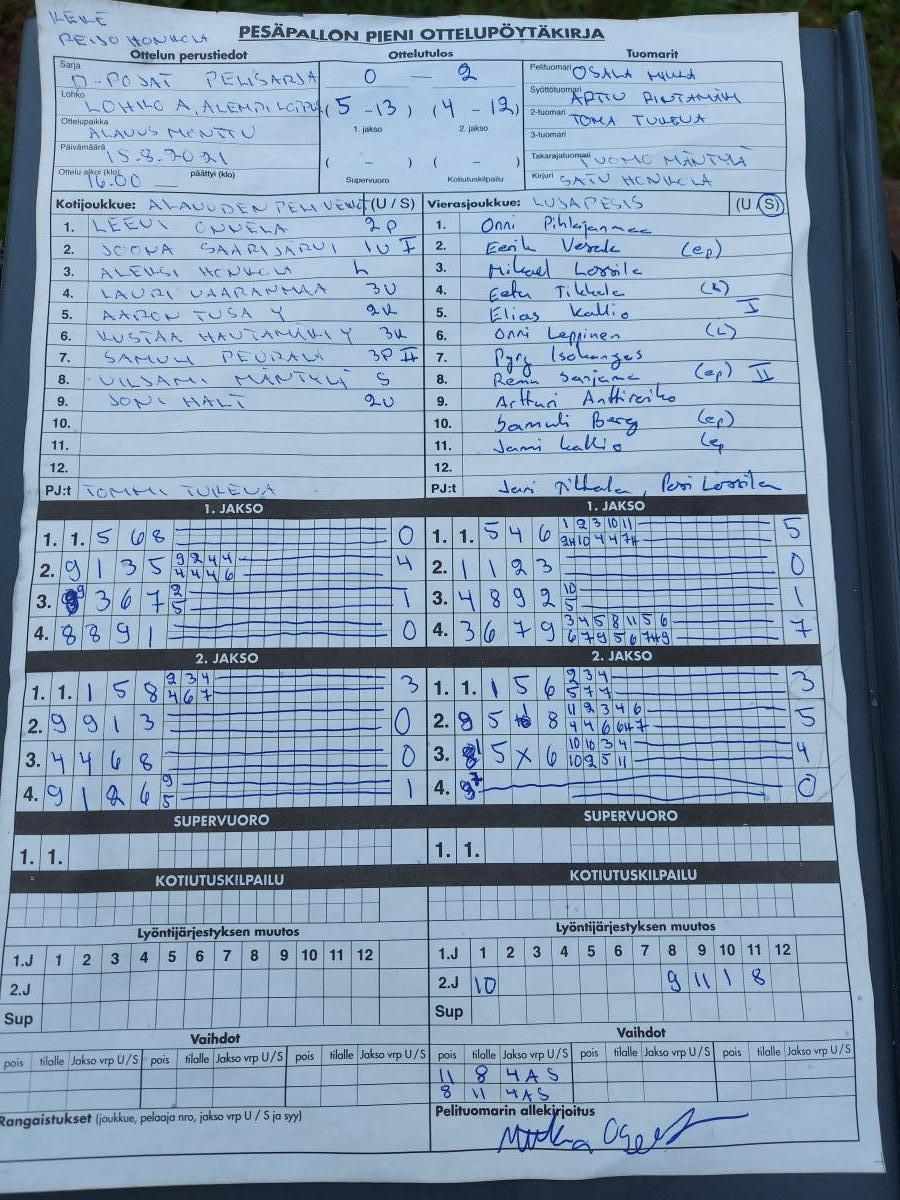 KEKE
REIJO HONKOLA
PESÄPALLON PIENI OTTELUPÖYTÄKIRJA
Ottelun perustiedot Ottelutulos Tuomarit
Sarja D-POJAT PELISARJA 0 – 2 Pelituomari OSALA MIKKA
Lohko LOHKO A, ALEMPI (5 - 13) (4 - 12) Syöttötuomari ARTTU RINTAMÄKI
1. jakso 2. jakso
Ottelupaikka ALAVUS MÖNTTU 2-tuomari TOMA TULEVA
3-tuomari
Päivämäärä 15.8.2021 ( - ) ( - ) Takarajatuomari TUOMO MÄNTYLÄ
Ottelu alkoi (klo) 16.00 päättyi (klo) Supervuoro Kotiutuskilpailu Kirjuri SATU HONKOLA
Kotijoukkue: ALAVUDEN (U / S) Vierasjoukkue: LUJAPESIS (U / S)
1. LEEVI ONNELA 2P 1. Onni Pihlajanmaa
2. JOONA SAARIJÄRVI 1V I 2. Eerik (ep)
3. ALEKSI HONKOLA L 3. Mikael Lossila
4. LAURI VAARANMAA 3V 4. Eetu Tikkala (h)
5. AARON TUSA Y 2K 5. Elias Kallio I
6. KUSTAA HAUTAMÄKI Y 3K 6. Onni Leppinen (L)
7. SAMULI PEURALA 3P II 7. Pyry Isokangas
8. VILJAMI MÄNTYLÄ S 8. Remu Sarjama (ep) II
9. JONI HALT 2V 9. Artturi Anttireiko
10. 10. Samuli Berg (ep)
11. 11. Jami Kallio (ep
12. 12.
PJ:t TOMMI TULEVA PJ:t Jari Tikkala, Pasi Lossila
1. JAKSO 1. JAKSO
1. 1. 5 6 8 0 1. 1. 5 4 6 1 2 3 10 11 5
2. 9 1 3 5 9 2 4 4 4 2. 1 1 2 3 0
4 4 4 6
3. 9 3 6 7 2 1 3. 4 8 9 2 10 1
5 5
4. 8 8 9 1 0 4. 3 6 7 9 3 4 5 8 11 5 6 7
2. JAKSO 2. JAKSO
1. 1. 1 5 8 2 3 4 3 1. 1. 1 5 6 2 3 4 3
4 6 7 5 7 7
2. 9 9 1 3 0 2. 8 5 8 11 2 3 4 6 5
3. 4 4 6 8 0 3. 5 X 6 10 10 3 4 4
10 2 5 11
4. 9 1 2 6 9 1 4. 7 0
5
SUPERVUORO SUPERVUORO
1. 1. 1. 1.
KOTIUTUSKILPAILU KOTIUTUSKILPAILU
Lyöntijärjestyksen muutos Lyöntijärjestyksen muutos
1.J 1 2 3 4 5 6 7 8 9 10 11 12 1.J 1 2 3 4 5 6 7 8 9 10 11 12
2.J 2.J 10 9 11 1 8
Sup Sup
Vaihdot Vaihdot
pois tilalle Jakso vrp U/S pois tilalle Jakso vrp U/S pois tilalle Jakso vrp U/S pois tilalle Jakso vrp U/S pois tilalle Jakso vrp U/S pois tilalle Jakso vrp U/S
11 8 4 A S
8 11 4 A S
Rangaistukset (joukkue, pelaaja nro, jakso vrp U / S ja syy) Pelituomarin allekirjoitus